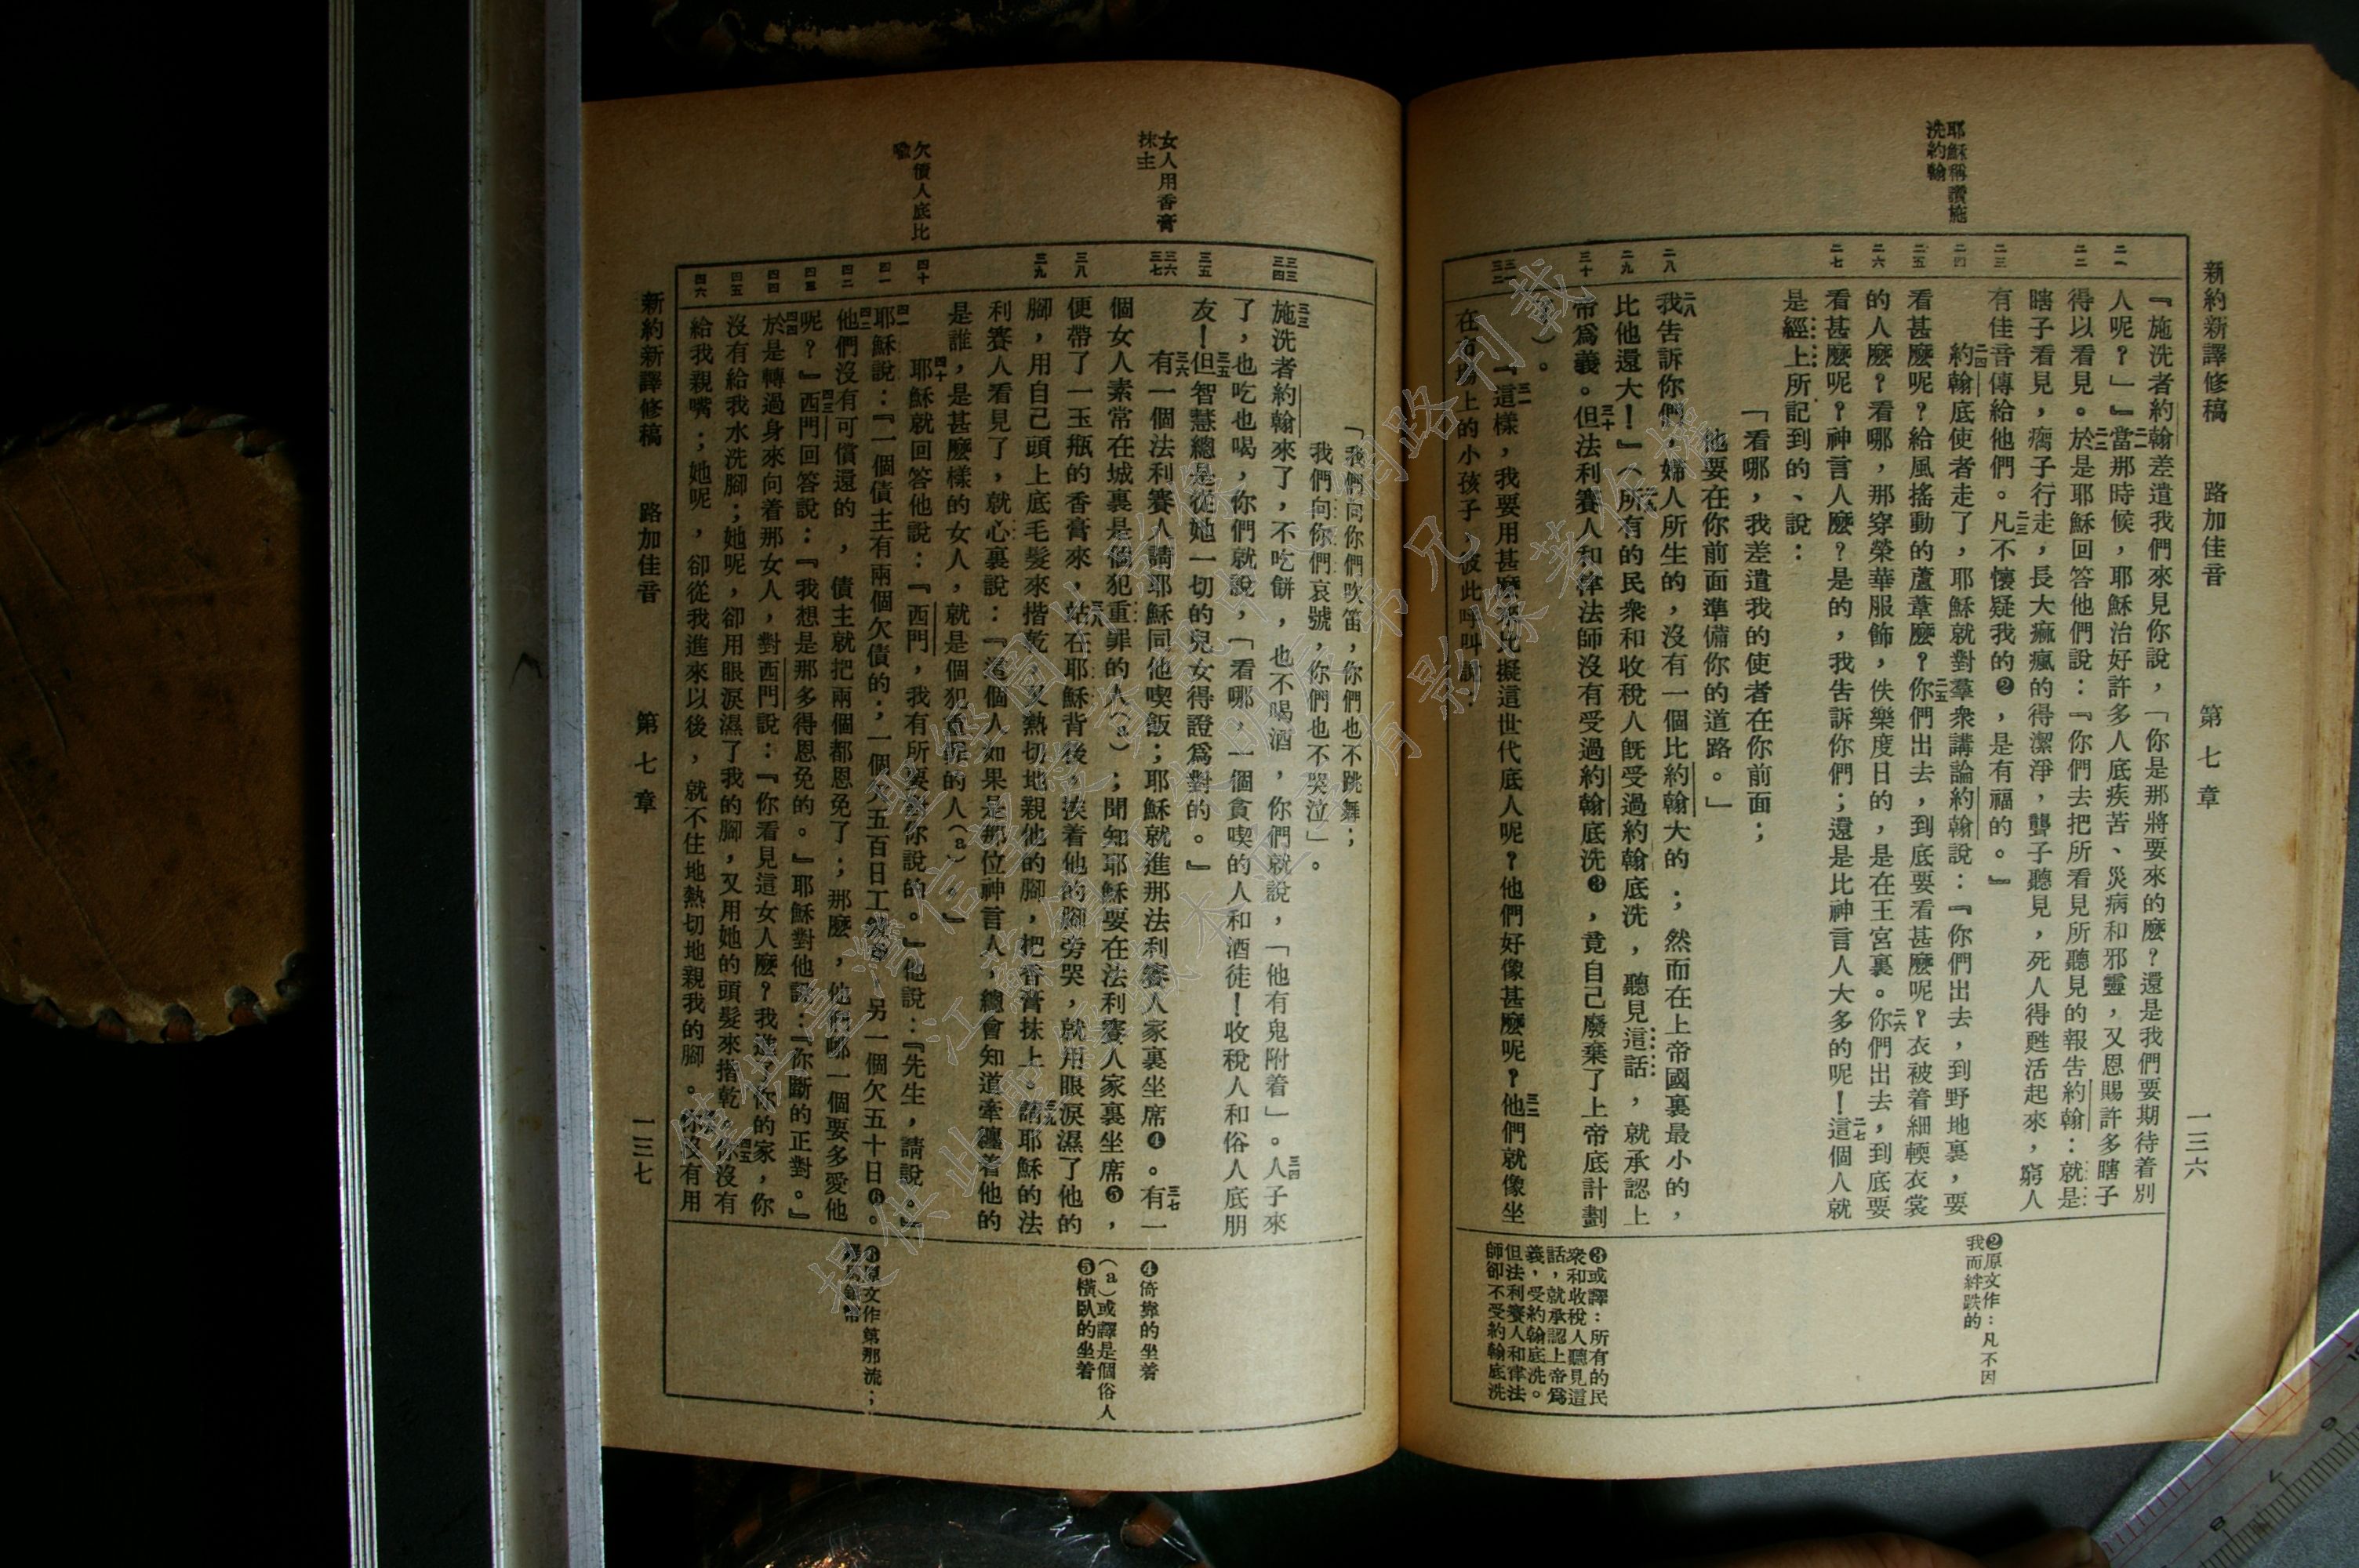 新約新譯修稿 路加佳音 第七章 一三六
耶穌稱讚施
洗約翰
二一
二二
二三
二四
二五
二六
二七
二八
二九
三十
三一
三二
『施洗者約翰差遣我們來見你說，「你是那將要來的麼？還是我們要期待着別
人呢？」』二一當那時候，耶穌治好許多人底疾苦、災病和邪靈，又恩賜許多瞎子
得以看見。二二於是耶穌回答他們說：『你們去把所看見所聽見的報告約翰：就是
瞎子看見，瘸子行走，長大痲瘋的得潔淨，聾子聽見，死人得甦活起來，窮人
有佳音傳給他們。二三凡不懷疑我的❷，是有福的。』
二四約翰底使者走了，耶穌就對羣衆講論約翰說：『你們出去，到野地裏，要
看甚麼呢？給風搖動的蘆葦麼？二五你們出去，到底要看甚麼呢？衣被着細輭衣裳
的人麼？看哪，那穿榮華服飾，佚樂度日的，是在王宮裏。二六你們出去，到底要
看甚麼呢？神言人麼？是的，我告訴你們；還是比神言人大多的呢！二七這個人就
是經上所記到的、說：
「看哪，我差遣我的使者在你前面；
他要在你前面準備你的道路。」
二八我告訴你們，婦人所生的，沒有一個比約翰大的；然而在上帝國裏最小的，
比他還大！』（二九所有的民衆和收稅人旣受過約翰底洗，聽見這話，就承認上
帝爲義。三十但法利賽人和律法師沒有受過約翰底洗❸，竟自己廢棄了上帝底計劃
）。
三一『這樣，我要用甚麼來比擬這世代底人呢？他們好像甚麼呢？三二他們就像坐
在 上的小孩子，彼此呼叫說：
❷原文作：凡不因
我而絆跌的
❸或譯：所有的民
衆和收稅人聽見這
話，就承認上帝爲
義，受約翰底洗。
但法利賽人和律法
師卻不受約翰底洗
女人用香膏
抹主
欠債人底比
喩
三三
三四
三五
三六
三七
三八
三九
四十
四一
四二
四三
四四
四五
四六
「我們向你們吹笛，你們也不跳舞；
我們向你們哀號，你們也不哭泣」。
三三施洗者約翰來了，不吃餅，也不喝酒，你們就說，「他有鬼附着」。三四人子來
了，也吃也喝，你們就說，「看哪，一個貪喫的人和酒徒！收稅人和俗人底朋
友！三五但智慧總是從她一切的兒女得證爲對的。』
三六有一個法利賽人請耶穌同他喫飯；耶穌就進那法利賽人家裏坐席❹。三七有一
個女人素常在城裏是個犯重罪的人（a）；聞知耶穌要在法利賽人家裏坐席❺，
便帶了一玉瓶的香膏來，三八站在耶穌背後，挨着他的腳旁哭，就用眼淚濕了他的
腳，用自己頭上底毛髮來揩乾，又熱切地親他的腳，把香膏抹上。三九請耶穌的法
利賽人看見了，就心裏說：『這個人如果是那位神言人，總會知道牽纏着他的
是誰，是甚麼樣的女人，就是個犯重罪的人（a）。』
四十耶穌就回答他說：『西門，我有所要對你說的。』他說：『先生，請說。』
四一耶穌說：『一個債主有兩個欠債的；一個欠五百日工錢，另一個欠五十日❻。
四二他們沒有可償還的，債主就把兩個都恩免了；那麼，他們哪一個要多愛他
呢？』四三西門回答說：『我想是那多得恩免的。』耶穌對他說：『你斷的正對。』
四四於是轉過身來向着那女人，對西門說：『你看見這女人麼？我進了你的家，你
沒有給我水洗腳；她呢，卻用眼淚濕了我的腳，又用她的頭髮來揩乾。四五你沒有
給我親嘴；她呢，卻從我進來以後，就不住地熱切地親我的腳。四六你沒有用
❹倚靠的坐着
（a）或譯是個俗人
❺橫臥的坐着
❻原文作第那流；
新約新譯修稿 路加佳音 第七章 一三七